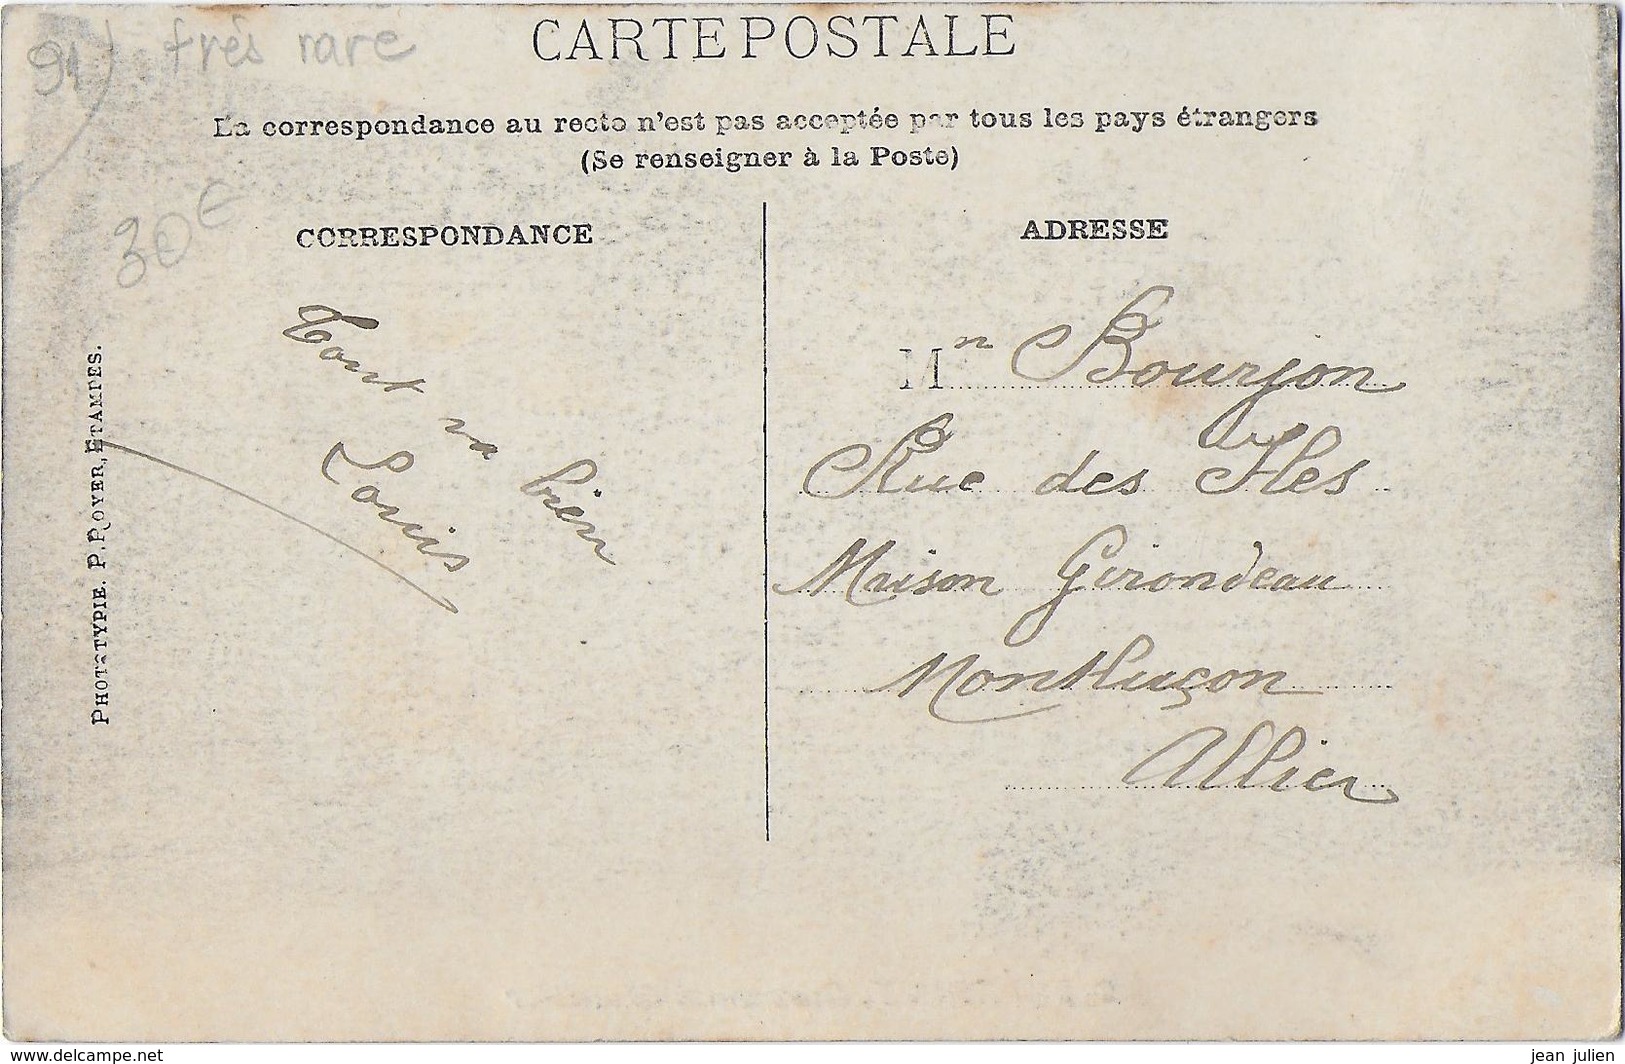 91) très rare
CARTE POSTALE
La correspondance au recto n'est pas acceptée par tous les pays étrangers
(Se renseigner à la Poste)
30€
CORRESPONDANCE
Tout va bien
Louis
PHOTOTYPIE. P. ROYER, ETAMPES.
ADRESSE
Mn Bourjon
Rue des Iles
Maison Girondeau
Montluçon
Allier
www.delcampe.net
jean julien